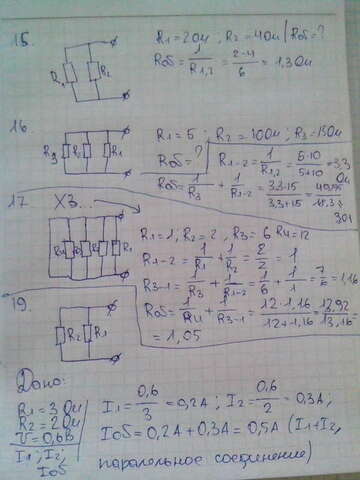 15.
R₁ R₂
R₁=2Ом ; R₂=4Ом / Rоб=?
Rоб=1/R₁,₂=2·4/6=1,3Ом
16.
R₃ R₂ R₁
R₁=5 ; R₂=10Ом ; R₃=15Ом
Rоб=?
R₁₋₂=1/R₁,₂=5·10/5+10=3,3 Ом
Rоб=1/R₃+1/R₁₋₂=3,3·15/3,3+15
17. ХЗ...
R₁=1, R₂=2, R₃=6 R₄=12
R₁₋₂=1/R₁+1/R₂=2/2=1
R₃₋₁=1/R₃+1/R₁₋₂=1/6+1/1=7/6=1,16
Rоб=1/R₄+1/R₃₋₁=12·1,16/12+1,16=13,92/13,16=
=1,05
19.
R₂ R₁
Дано:
R₁=3Ом
R₂=2Ом
V=0,6В
I₁; I₂;
Iоб
I₁=0,6/3=0,2А; I₂=0,6/2=0,3А;
Iоб=0,2А+0,3А=0,5А (I₁+I₂,
паралельное соединение)